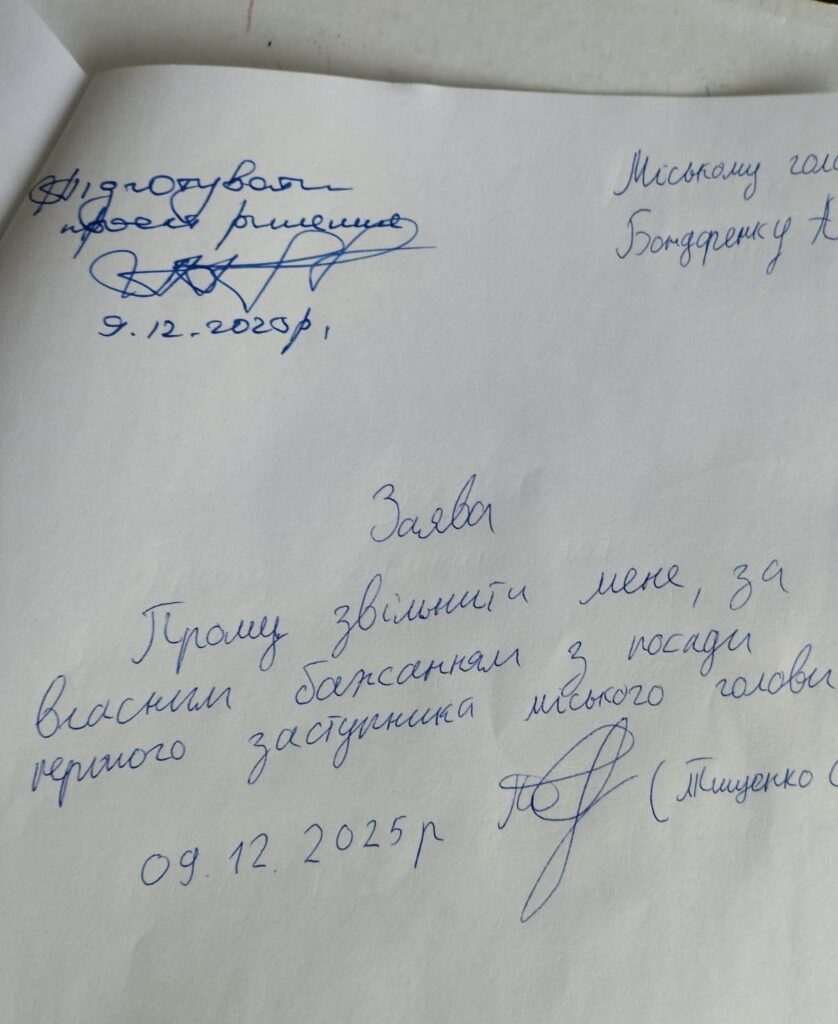 Підготувати
проєкт рішення
9.12.2025р,
Міському голо
Бондаренку А
Заява
Прошу звільнити мене, за
власним бажанням з посади
першого заступника міського голови
(Тищенко С
09.12.2025р